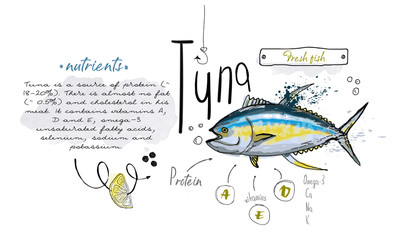 Tuna
Fresh fish
• nutrients •
Tuna is a source of protein (~
18-20%). There is almost no fat
(~ 0.5%) and cholesterol in his
meat. It contains vitamins A,
D and E, omega-3
unsaturated fatty acids,
selenium, sodium and
potassium.
Protein
A
D
vitamins
E
Omega-3
Ca
Na
K